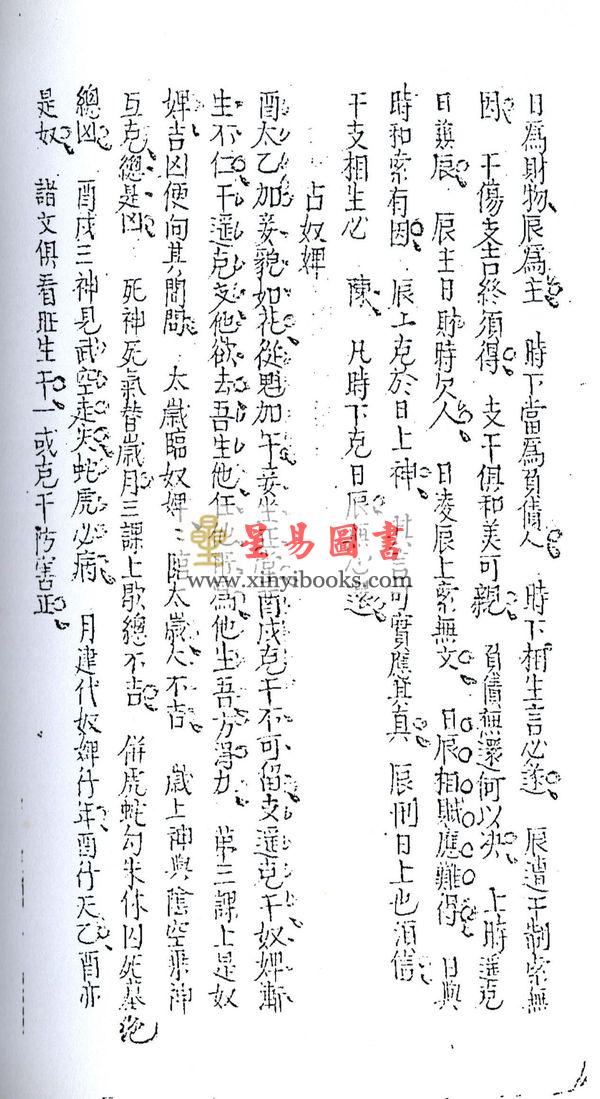 日為財物辰為主　時下當為負債人　時下相生言必遂　辰遭干制索無
因　干傷支吉終須得　支干俱和美可親　負債無還何以决　上時遥克
日兼辰　辰主日財時欠人　日凌辰上索無文　日辰相賊應難得　日與
時和索有因　辰上克於日上神　可實應其真　辰刑日上也須信
干支相生必　陳　凡時下克日辰
占奴婢
酉太乙加妾貌如花從魁加午妾　酉戌克干不可留支遥克干奴婢漸
生不仁干遥克支他欲去吾生他任他　為他生吾方得力　第三課上是奴
婢吉凶便向其間問　太歲臨奴婢　臨太歲　不吉　歲上神與陰空乘神
互克總是凶　死神死氣替歲月三課上歇總不吉　併虎蛇勾朱休囚死墓絶
總凶　酉戌三神見武空走失蛇虎必病　月建代奴婢行年酉行天乙酉亦
是奴　諸文俱看旺生干一或克干防害正
星易圖書
www.xinyibooks.com